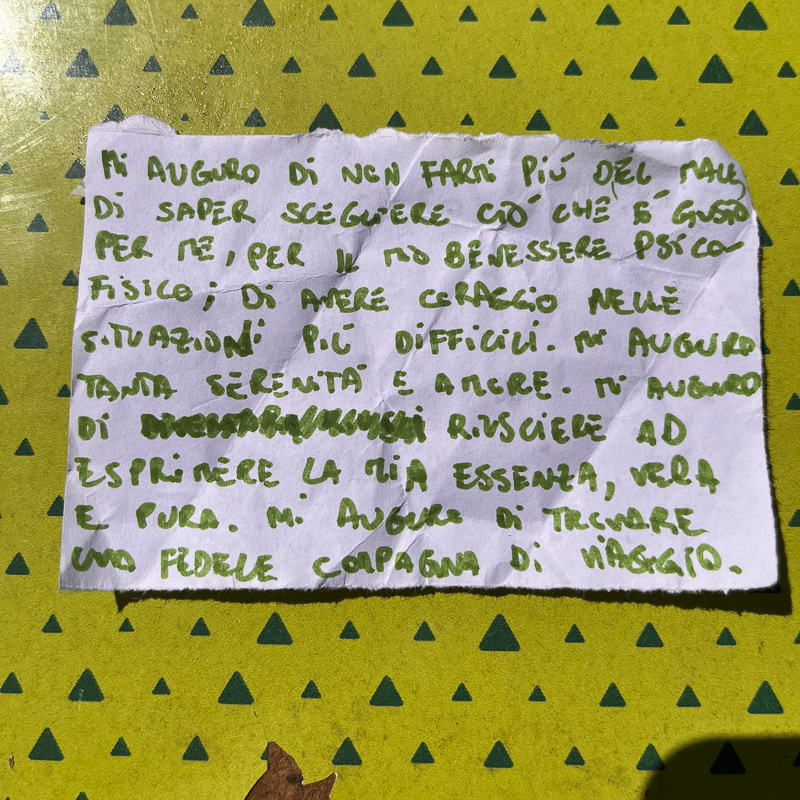 Mi AUGURO Di NON FARMi PiÙ DEL MALE,
Di SAPER SCEGLIERE CIÒ CHE È GiUSTO
PER ME, PER IL MIO BENESSERE PSiCO
FiSiCO; Di AVERE CORAGGIO NELLE
SiTUAZIONi PiÙ DiFFiCiLi. Mi AUGURO
TANTA SERENITÀ E AMORE. Mi AUGURO
Di RIUSCIERE AD
ESPRiMERE LA MiA ESSENZA, VERA
E PURA. Mi AUGURO Di TROVARE
UNA FEDELE COMPAGNA Di ViAGGIO.